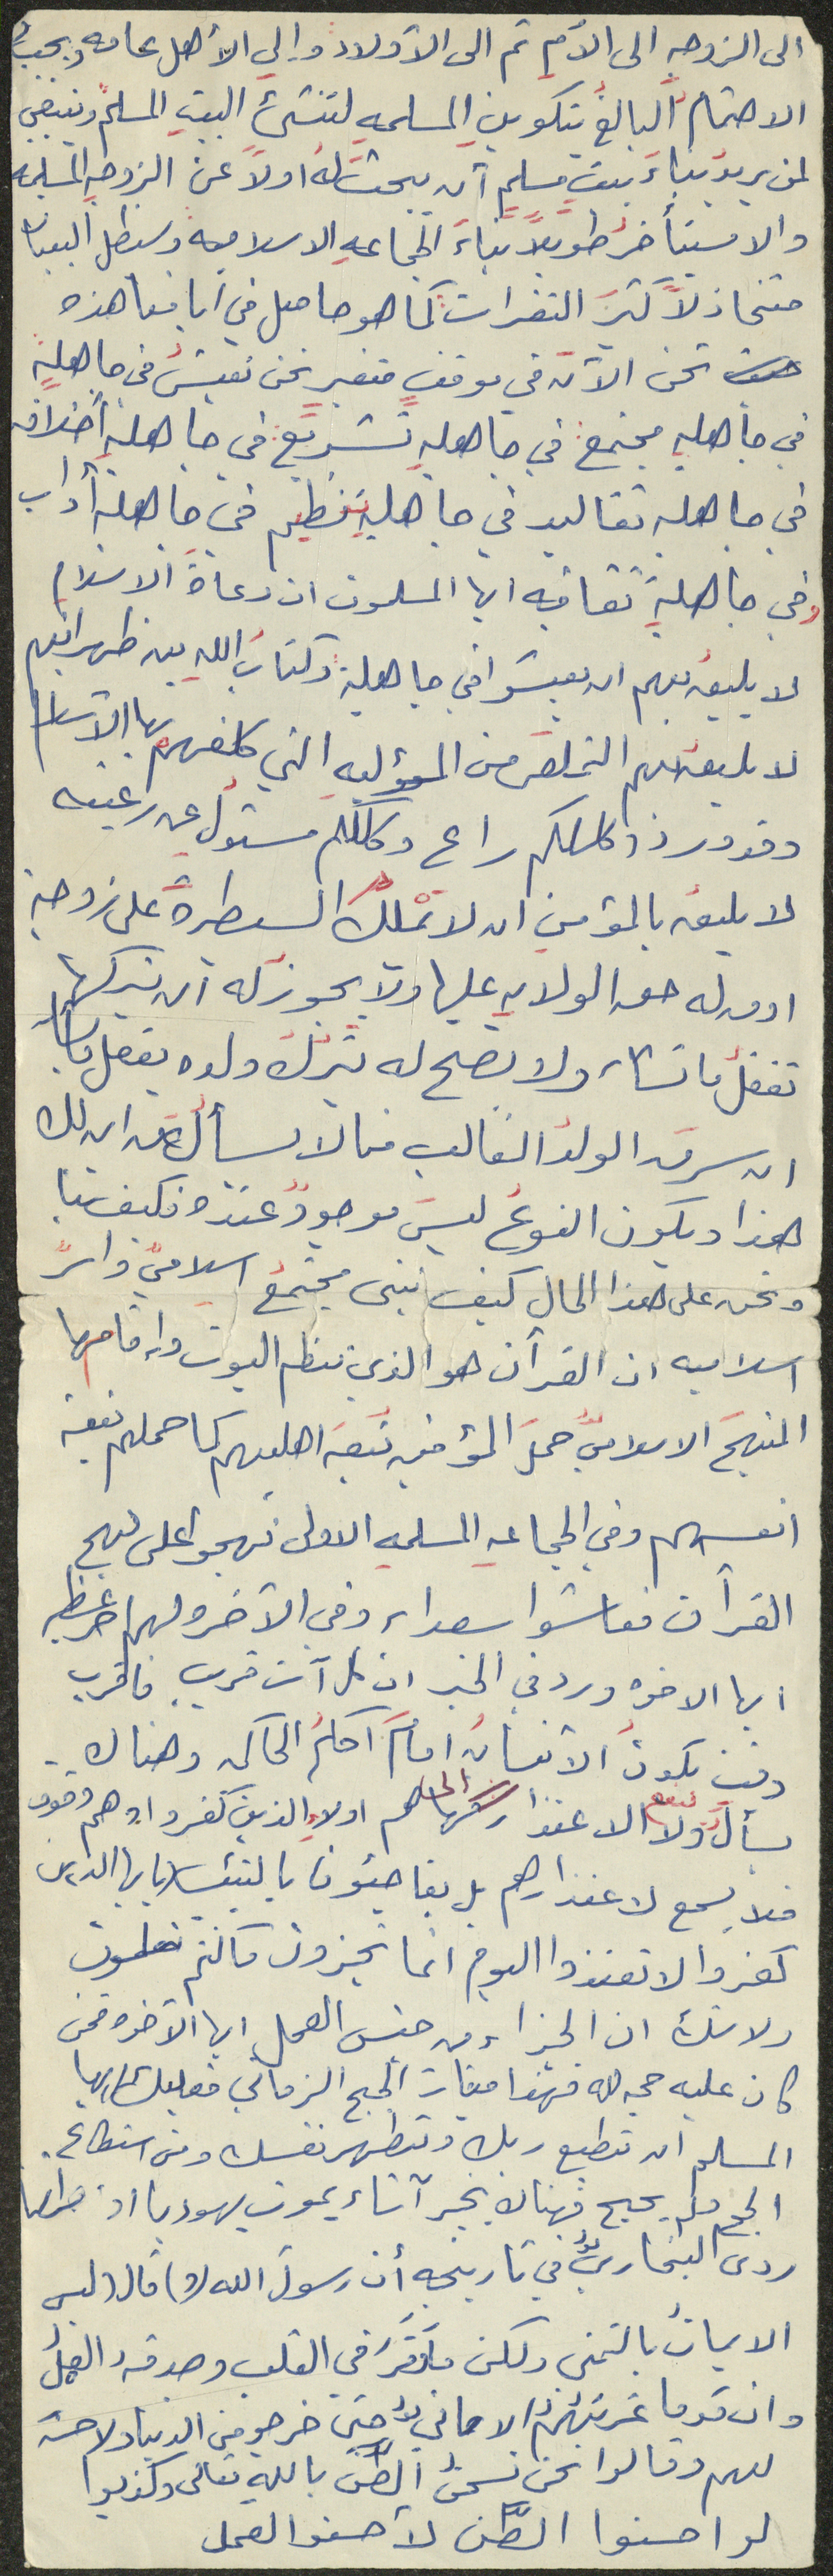 الى الزوجه الى الأم ثم الى الأولاد والي الأهل عامه ويجب
الاهتمام البالغ بتكوين المسلمه لتنشئ البيت المسلم وينبغي
لمن يريد بناء بيت مسلم أن يبحث له اولاً عن الزوجه المسلمه
والا سيتأخر طويلاً بناء الجماعه الاسلاميه وسيظل البنيان
متخاذلاً كثير الثغرات كما هو حاصل في أيامنا هذه
نحن الآن في موقف متغير نحن نعيش في جاهلية
في جاهليه مجتمع في جاهلية تشريع في جاهلية أخلاق
في جاهلية تقاليد في جاهلية تنظيم في جاهلية آداب
وفي جاهلية ثقافيه ايها المسلمون ان دعاة الاسلام
لا يليق بهم ان يعيشوا في جاهلية وكتاب الله بين ظهرانيهم
لا يليق بهم التملص من المسؤليه التي كلفهم بها الاسلام
وقد ورد وكلكم راع وكلكم مسئول عن رعيته
لا يليق بالمؤمن ان لا تملك السيطرة على زوجة
اومن له حق الولايه عليها ولا يجوز له أن يتركها
تفعل ما تشاء ولا يصلح له يترك ولده يفعل ما شاء
ان سرق الولد الغالب منا لا يسأل من اين لك
هذا ويكون النوع ليس موجود عنده فكيف بنا
ونحن على هذا الحال كيف نبني مجتمع اسلامي واسر
اسلاميه ان القرآن هو الذي ينظم البيوت واقامها
المنهج الاسلامي حمل المؤمنين تبعة اهليهم كما حملهم تبعة
انفسهم وفي الجماعه المسلمه الاولى نهجوا على نهج
القرآن فعاشوا سعداء وفي الآخره لهم اجر عظيم
ايها الاخوه ورد في الخبر ان كل آت قريب فاقرب
وقت يكون الانسان امام احكم الحاكمين وهناك
يسأل ولا الاعتذار هم اولاء الذين كفروا وهم وقوف
فلا يسمع لاعتذارهم بل يفاجئون بالتيئيس (يايها الذين
كفروا لا تعتذروا اليوم انما تجزون ما كنتم تعملون
ولا شك ان الجزاء من جنس العمل ايها الأخوه فمن
كان عليه حجه لله فهذا ميقات الحج الزماني فعليك ايها
المسلم ان تطيع ربك وتطهر نفسك ومن استطاع
الحج ولم يحج فهناك يخير أن يموت يهوديا او نصرانيا
روى البخاري في تاريخه أن رسول الله (ص) قال (ليس
الايمان بالتمني ولكن ما وقر في القلب وصدقه العمل
وان قوما غرتهم الاماني حتى خرجو من الدنيا ولا حسنة
لهم وقالوا نحن نحسن الظن بالله تعالى وكذبوا
لو احسنوا الظن لأحسنوا العمل